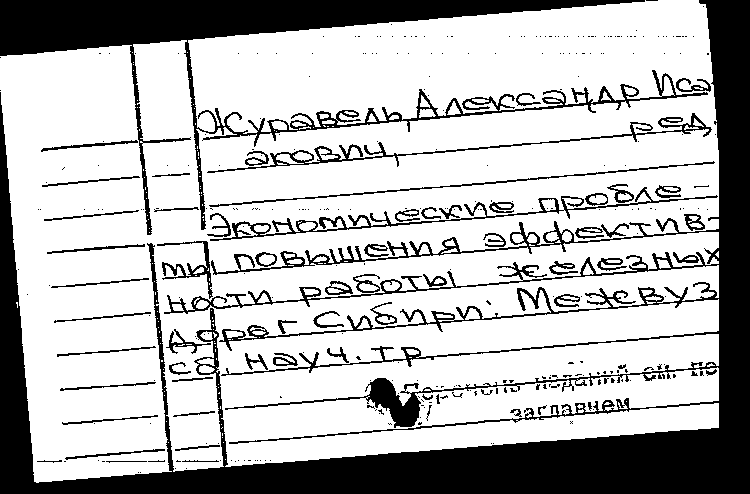 Журавель, Александр Иса
акович, ред.
Экономические пробле-
мы повышения эффектив-
ности работы железных
дорог Сибири: Межвуз
сб. науч. тр.
Перечень изданий см. по
заглавием